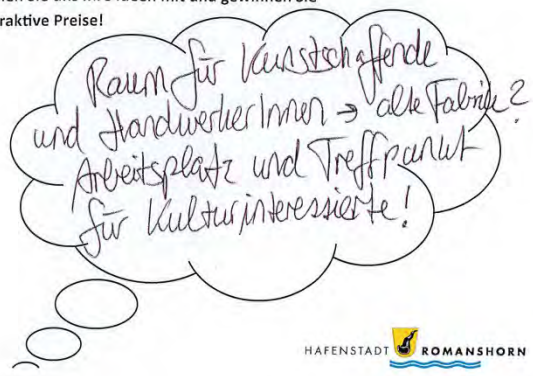 Sie uns Ihre Ideen mit und gewinnen Sie
raktive Preise!
Raum für Kunstschaffende
und HandwerkerInnen → alte Fabrik?
Arbeitsplatz und Treffpunkt
für Kulturinteressierte!
HAFENSTADT ROMANSHORN